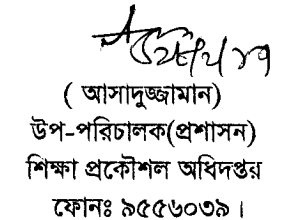 ( আসাদুজ্জামান)
উপ-পরিচালক(প্রশাসন)
শিক্ষা প্রকৌশল অধিদপ্তর
ফোনঃ ৯৫৫৬০৩৯ ।